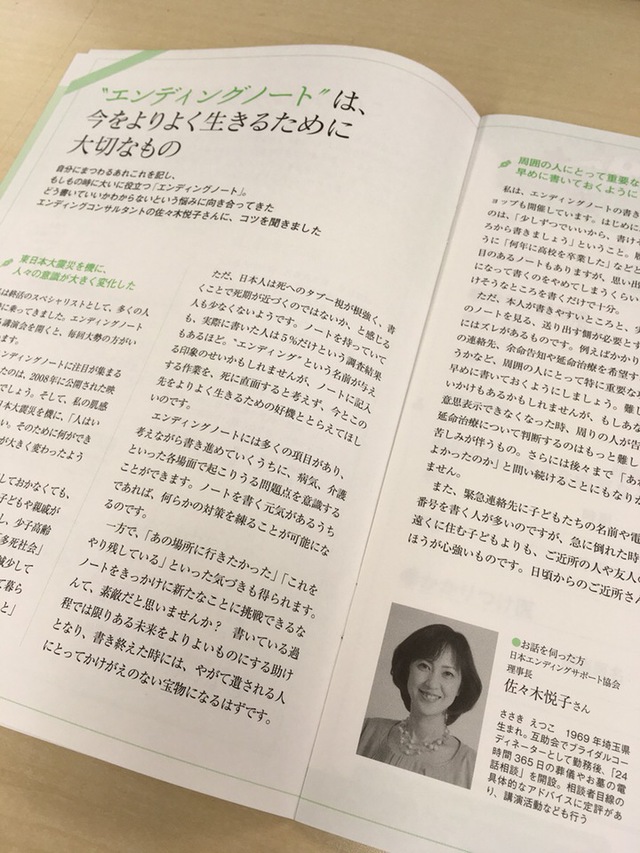 “エンディングノート”は、
今をよりよく生きるために
大切なもの
自分にまつわるあれこれを記し、
もしもの時に大いに役立つ「エンディングノート」。
どう書いていいかわからないという悩みに向き合ってきた
エンディングコンサルタントの佐々木悦子さんに、コツを聞きました
東日本大震災を機に、
人々の意識が大きく変化した
は終活のスペシャリストとして、多くの人
に乗ってきました。エンディングノート
る講演会を開くと、毎回大勢の方がい
ます。
エンディングノートに注目が集まる
たのは、2008年に公開された映
でしょう。そして、私の肌感
日本大震災を機に、「人はい
い。そのために何ができ
が大きく変わったよう
しておかなくても、
子どもや親戚が
し、少子高齢
「多死社会」
減少して
て暮ら
」と
ただ、日本人は死へのタブー視が根強く、書
くことで死期が近づくのではないか、と感じる
人も少なくないようです。ノートを持っていて
も、実際に書いた人は5%だけという調査結果
もあるほど。“エンディング”という名前が与え
る印象のせいかもしれませんが、ノートに記入
する作業を、死に直面すると考えず、今とこの
先をよりよく生きるための好機ととらえてほし
いのです。
エンディングノートには多くの項目があり、
考えながら書き進めていくうちに、病気、介護
といった各場面で起こりうる問題点を意識する
ことができます。ノートを書く元気があるうち
であれば、何らかの対策を練ることが可能にな
るのです。
一方で、「あの場所に行きたかった」「これを
やり残している」といった気づきも得られます。
ノートをきっかけに新たなことに挑戦できるな
んて、素敵だと思いませんか? 書いている過
程では限りある未来をよりよいものにする助け
となり、書き終えた時には、やがて遺される人
にとってかけがえのない宝物になるはずです。
周囲の人にとって重要な
早めに書いておくように
私は、エンディングノートの書き
ョップも開催しています。はじめに
のは、「少しずつでいいから、書け
ろから書きましょう」ということ。
うに「何年に高校を卒業した」などと
目のあるノートもありますが、思い出
になって書くのをやめてしまうくらい
けそうなところを書くだけで十分。
ただ、本人が書きやすいところと、
のノートを見る、送り出す側が必要とす
にはズレがあるものです。例えばかかり
の連絡先、余命告知や延命治療を希望す
うかなど、周囲の人にとって特に重要な項
早めに書いておくようにしましょう。難し
いかけもあるかもしれませんが、もしあな
意思表示できなくなった時、周りの人が告
延命治療について判断するのはもっと難し
苦しみが伴うもの。さらには後々まで「あ
よかったのか」と問い続けることにもなりか
ません。
また、緊急連絡先に子どもたちの名前や電
番号を書く人が多いのですが、急に倒れた時
遠くに住む子どもよりも、ご近所の人や友人の
ほうが心強いものです。日頃からのご近所さん
●お話を伺った方
日本エンディングサポート協会
理事長
佐々木悦子さん
ささき えつこ 1969年埼玉県
生まれ。互助会でブライダルコー
ディネーターとして勤務後、「24
時間365日の葬儀やお墓の電
話相談」を開設。相談者目線の
具体的なアドバイスに定評があ
り、講演活動なども行う